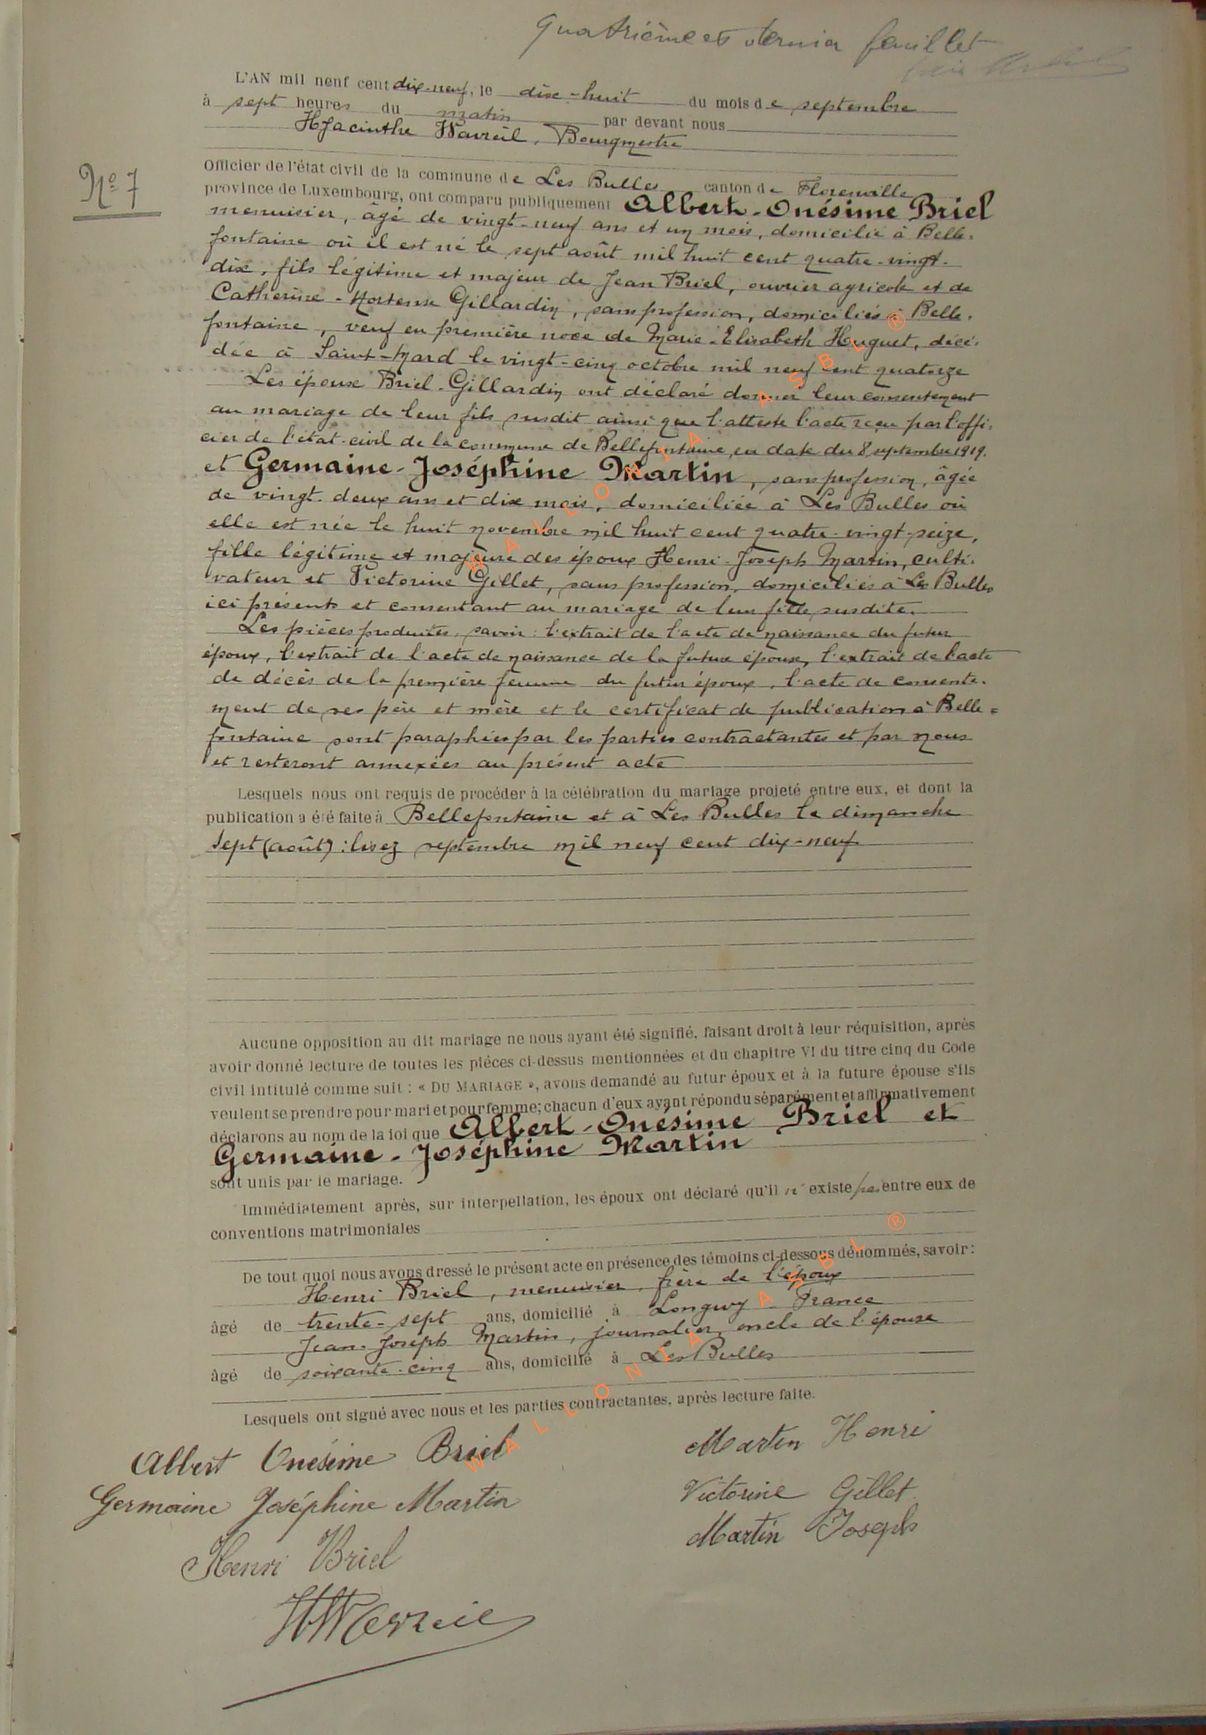 Quatrième et dernier feuillet
L'AN mil neuf cent dix-neuf, le dix-huit du mois de septembre
à sept heures du matin par devant nous
Hyacinthe Wavreil, Bourgmestre
Officier de l'état civil de la commune de Les Bulles canton de Florenville
N° 7
province de Luxembourg, ont comparu publiquement Albert-Onésime Briel
menuisier, âgé de vingt-neuf ans et un mois, domicilié à Belle-
fontaine où il est né le sept août mil huit cent quatre-vingt-
dix, fils légitime et majeur de Jean Briel, ouvrier agricole et de
Catherine-Hortense Gillardin, sans profession, domiciliés à Belle-
fontaine, veuf en première noce de Marie-Elisabeth Huguet, décé-
dée à Saint-Mard le vingt-cinq octobre mil neuf cent quatorze
Les épouse Briel-Gillardin ont déclaré donner leur consentement
au mariage de leur fils susdit ainsi que l'atteste l'acte reçu par l'offi-
cier de l'état-civil de la commune de Bellefontaine, en date du 8 septembre 1919.
et Germaine-Joséphine Martin, sans profession, âgée
de vingt-deux ans et dix mois, domiciliée à Les Bulles où
elle est née le huit novembre mil huit cent quatre-vingt-seize,
fille légitime et majeure des époux Henri-Joseph Martin, culti-
vateur et Victorine Gillet, sans profession, domiciliés à Les Bulles
ici présents et consentant au mariage de leur fille susdite.
Les pièces produites, savoir: l'extrait de l'acte de naissance du futur
époux, l'extrait de l'acte de naissance de la future épouse, l'extrait de l'acte
de décès de la première femme du futur époux, l'acte de consente-
ment de ses père et mère et le certificat de publication à Belle=
fontaine sont paraphées par les parties contractantes et par nous
et resteront annexées au présent acte
Lesquels nous ont requis de procéder à la célébration du mariage projeté entre eux, et dont la
publication a été faite à Bellefontaine et à Les Bulles le dimanche
sept (août): lisez septembre mil neuf cent dix-neuf
Aucune opposition au dit mariage ne nous ayant été signifié, faisant droit à leur réquisition, après
avoir donné lecture de toutes les pièces ci-dessus mentionnées et du chapitre VI du titre cinq du Code
civil intitulé comme suit : « DU MARIAGE », avons demandé au futur époux et à la future épouse s'ils
veulent se prendre pour mari et pour femme; chacun d'eux ayant répondu séparément et affirmativement
déclarons au nom de la loi que Albert-Onésime Briel et
Germaine-Joséphine Martin
sont unis par le mariage.
Immédiatement après, sur interpellation, les époux ont déclaré qu'il n'existe pas entre eux de
conventions matrimoniales
De tout quoi nous avons dressé le présent acte en présence des témoins ci-dessous dénommés, savoir :
Henri Briel, menuisier, frère de l'époux
âgé de trente-sept ans, domicilié à Longwy France
Jean-Joseph Martin, journalier, oncle de l'épouse
âgé de soixante-cinq ans, domicilié à Les Bulles
Lesquels ont signé avec nous et les parties contractantes, après lecture faite.
Albert Onésime Briel
Martin Henri
Germaine Joséphine Martin
Victorine Gillet
Henri Briel
Martin Joseph
WALLONIA ASBL ®
WALLONIA ASBL ®